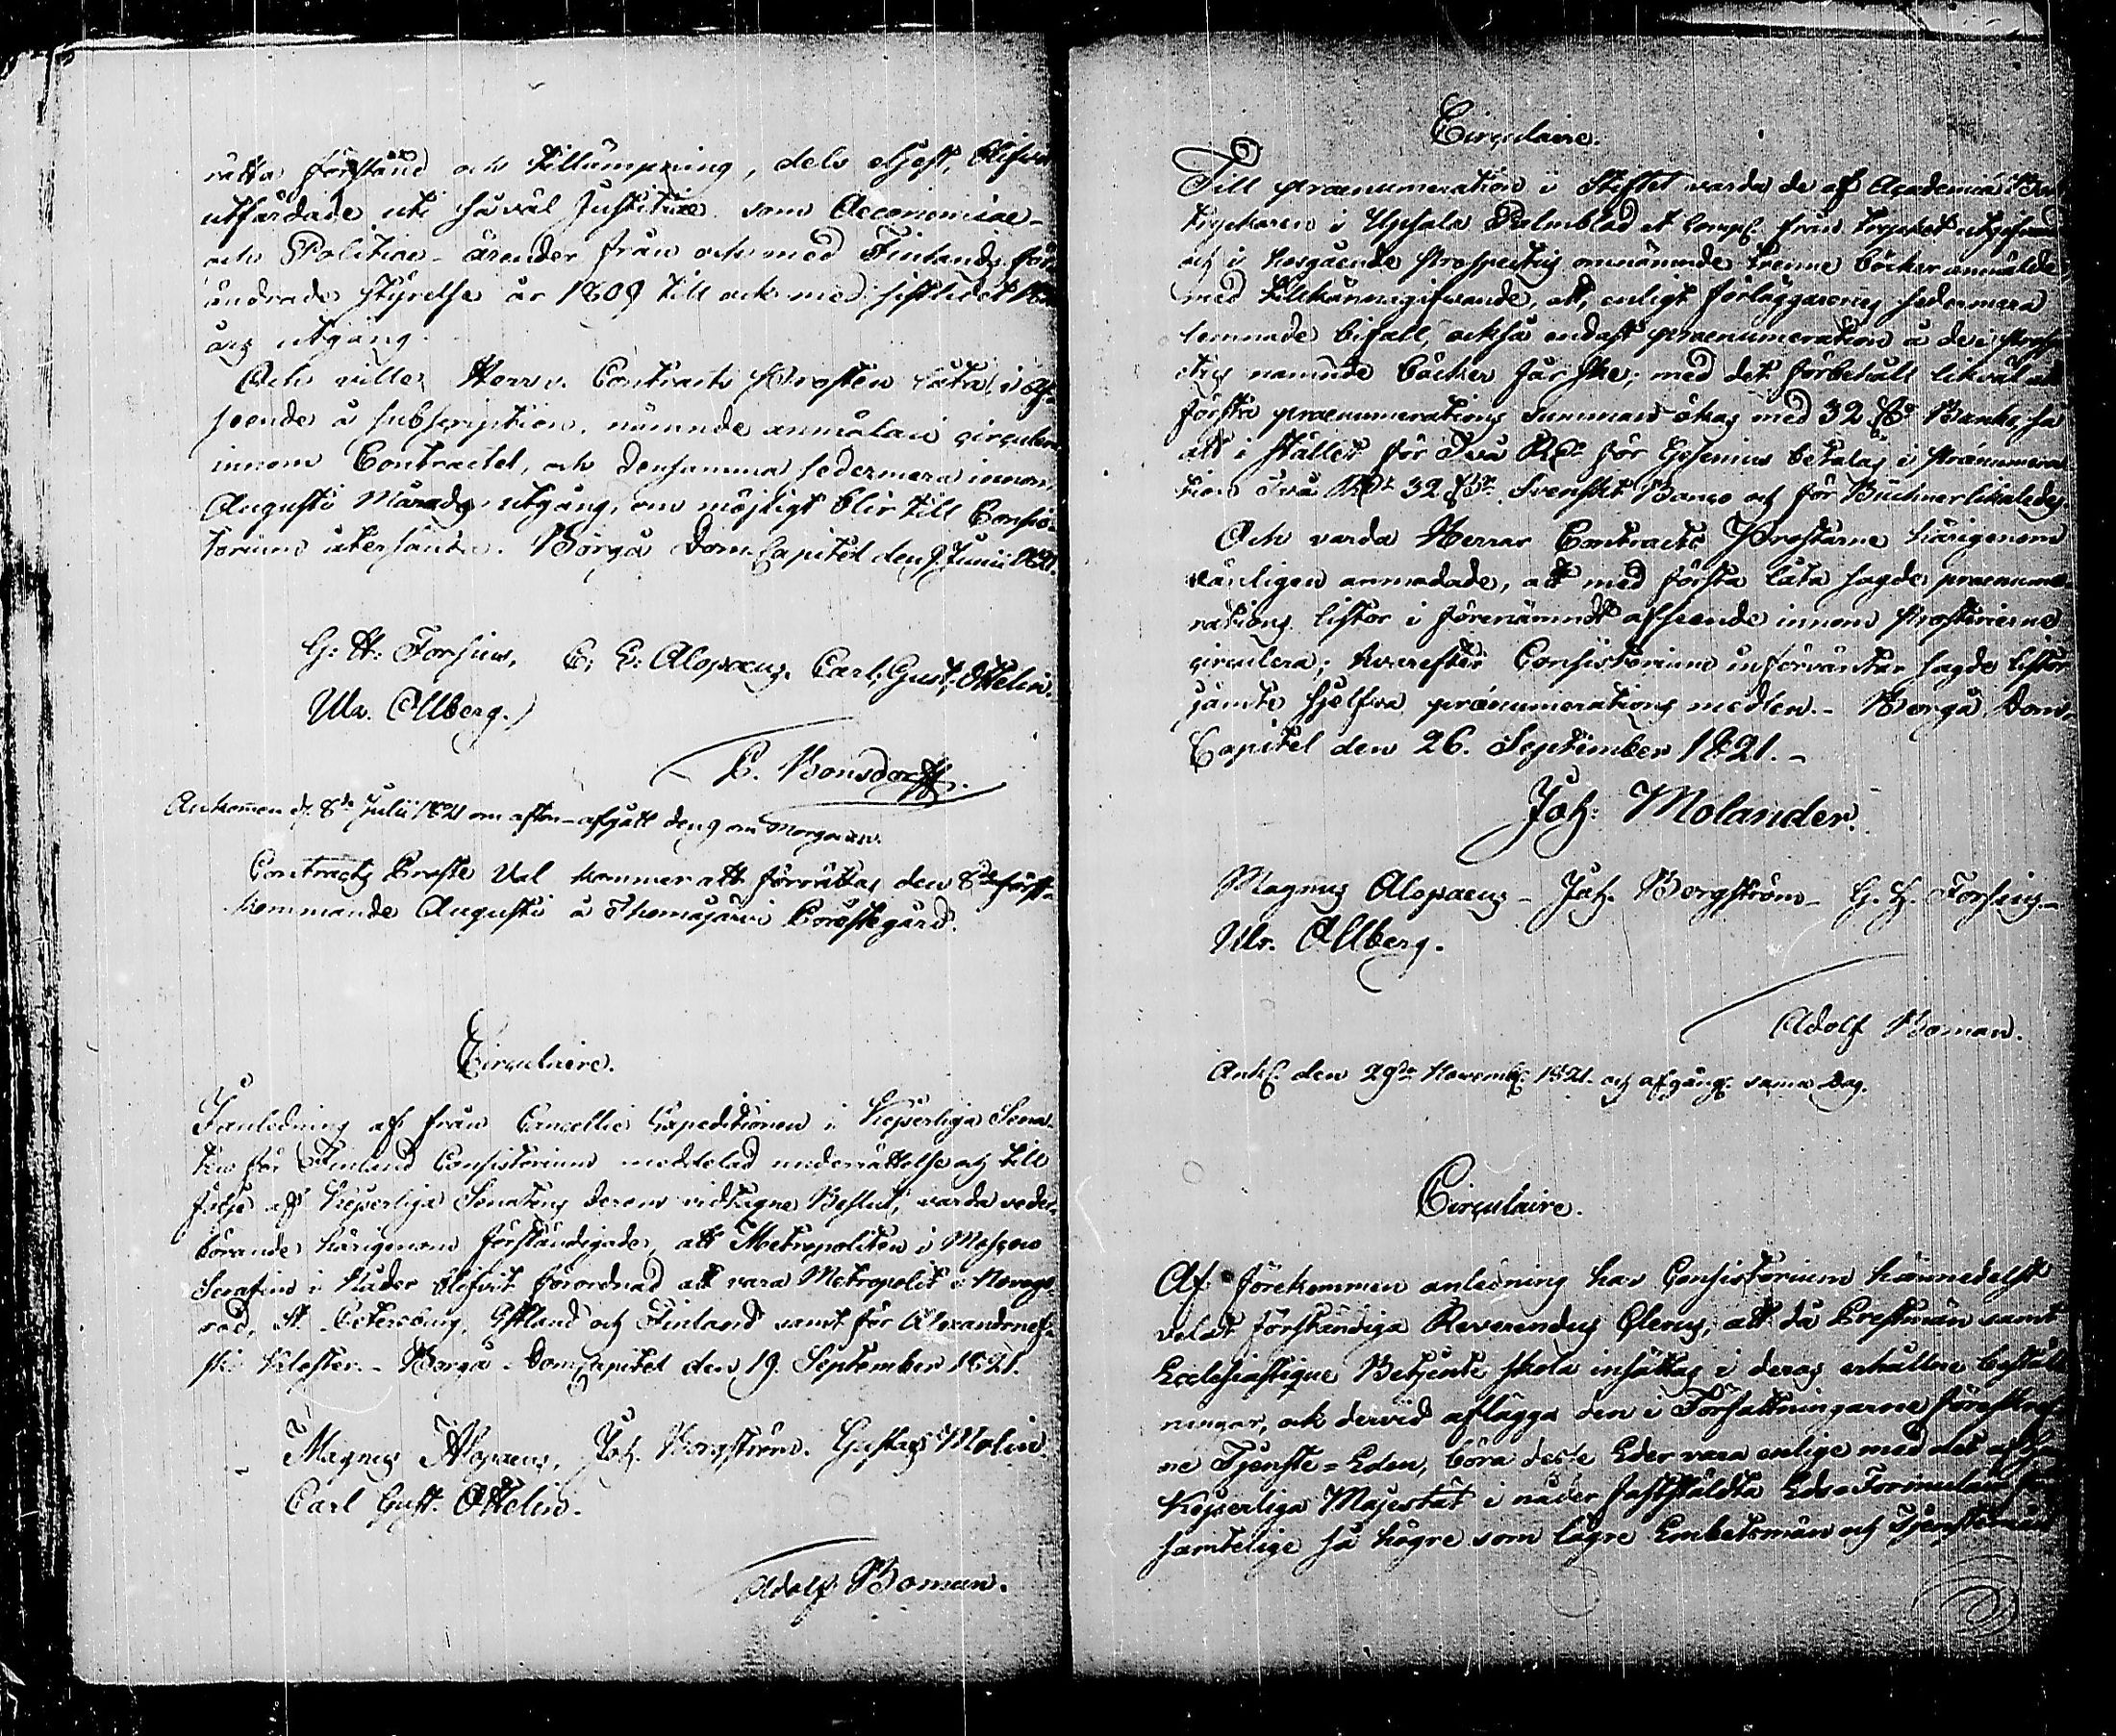 rätta förstånd och tillämpning, dels eljest, blifwit
utfärdade uti såväl Justitiae som Oeconomiae-
och Politiae-ärender från och med Finlands för-
ändrade styrelse år 1809 till och med sistledet
års utgång.
Och ville Herr Contracts Prosten låta i af-
seende å subscription, nämnde anmälan circulera
innom Contractet, och densamma sedermera innom
Augusti Månads utgång, om möjligt blir till Consis-
torium återsända. Borgå Dom-Capitel den 9 Junii 1821.
G. H. Forsius, E. E. Alopaeus. Carl Gust. Ottelin.
Ulr. Ollberg.
E. Bonsdorff.
Ankommen d. 8de Julii 1821 om afton - afgått den 9 om Morgonen.
Contracts Proste Val kommer att förrättas den 8de först-
kommande Augusti å Thomasjärvi Prästegård.
Circulaire.
I anledning af från Cancellie Expeditionen i Kejserliga Sena-
ten för Finland Consistorium meddelad underrättelse och till
följe af Kejserliga Senatens derom vidtagne Beslut, varda veder-
börande härigenom förständigade, att Metropoliten i Moscow
Serafim i Nåder blifvit förordnad att vara Metropolit i Novogo-
rod, St. Petersburg, Estland och Finland samt för Alexandronef-
ski Kloster. - Borgå DomCapitel den 19. September 1821.
Magnus Alopaeus, Joh. Borgström. Gustaf Molin
Carl Gust. Ottelin.
Adolf Boman.
Circulaire.
Till praenumeration i Stiftet varda de af Academiae Bok-
tryckaren i Upsala Palmblad et Comp. från trycket utgifvand
och i hosgående Prospectus omnämnde trenne böcker anmälde
med tillkännagifwande, att, enligt förläggarens sedermera
lemnade bifall, också endast praenumeration å de i Prospe-
ctus nämnde böcker får ske; med det förbehåll likväl att
första praenumerations summan ökas med 32 sk. Banko, så
att i stället för Två Rd. för Gesenius betalas i praenumera-
tion Två Rd. 32 sk. Svenskt Banco och för Büchner likaledes.
Och varda Herrar Contracts Prostarne härigenom
vänligen anmodade, att med första låta sagde praenume-
rations listor i förenämndt afseende innom Prosterierne
circulera; hvarefter Consistorium införväntar sagde listor
jämte sjelfva praenumerations medlen. - Borgå Dom-
Capitel den 26. September 1821. -
Joh: Molander.
Magnus Alopaeus - Joh. Borgström - G. H. Forsius -
Ulr. Ollberg.
Adolf Boman.
Ank. den 29de Novemb. 1821. och afgång. samma Dag.
Circulaire.
Af förekommen anledning har Consistorium härmedelst
velat förständiga Reverendus Clerus, att då Prestmän samt
Ecclesiastique Betjente skola insättas i deras erhållne beställ-
ningar, och dervid aflägga den i Författningarne föreskref-
ne Tjenste-Eden, böra desse Eder vara enlige med det af Hans
Kejserliga Majestät i nåder fastställdta Eds-Formulair för
samtelige så högre som lägre Embetsmän och Tjenstemän